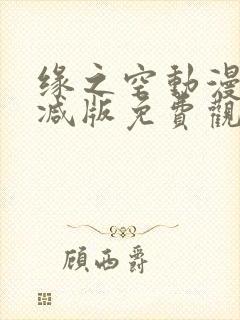 缘之空動漫
减版免費觀
顾西爵